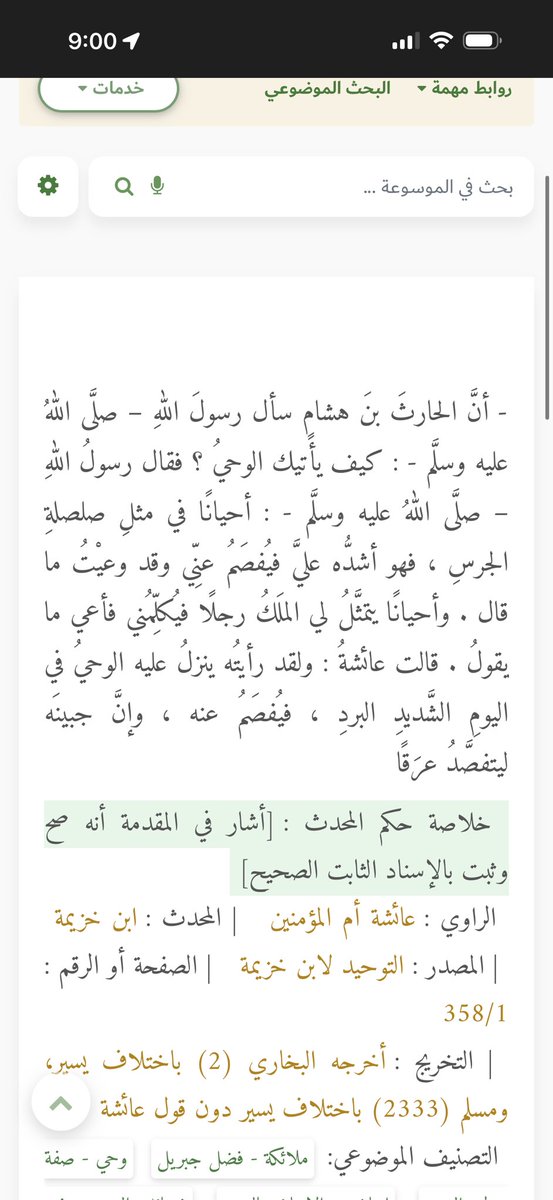 9:00
روابط مهمة
البحث الموضوعي
خدمات
بحث في الموسوعة ...
- أنَّ الحارثَ بنَ هشامٍ سأل رسولَ اللهِ – صلَّى اللهُ
عليه وسلَّم - : كيف يأتيك الوحيُ ؟ فقال رسولُ اللهِ
– صلَّى اللهُ عليه وسلَّم - : أحيانًا في مثلِ صلصلةِ
الجرسِ ، فهو أشدُّه عليَّ فيُفصَمُ عنِّي وقد وعيْتُ ما
قال . وأحيانًا يتمثَّلُ لي الملَكُ رجلًا فيُكلِّمُني فأعي ما
يقولُ . قالت عائشةُ : ولقد رأيتُه ينزلُ عليه الوحيُ في
اليومِ الشَّديدِ البردِ ، فيُفصَمُ عنه ، وإنَّ جبينَه
ليتفصَّدُ عرَقًا
خلاصة حكم المحدث : [أشار في المقدمة أنه صح
وثبت بالإسناد الثابت الصحيح]
الراوي : عائشة أم المؤمنين | المحدث : ابن خزيمة
| المصدر : التوحيد لابن خزيمة | الصفحة أو الرقم :
358/1
| التخريج : أخرجه البخاري (2) باختلاف يسير،
ومسلم (2333) باختلاف يسير دون قول عائشة
التصنيف الموضوعي: ملائكة - فضل جبريل وحي - صفة